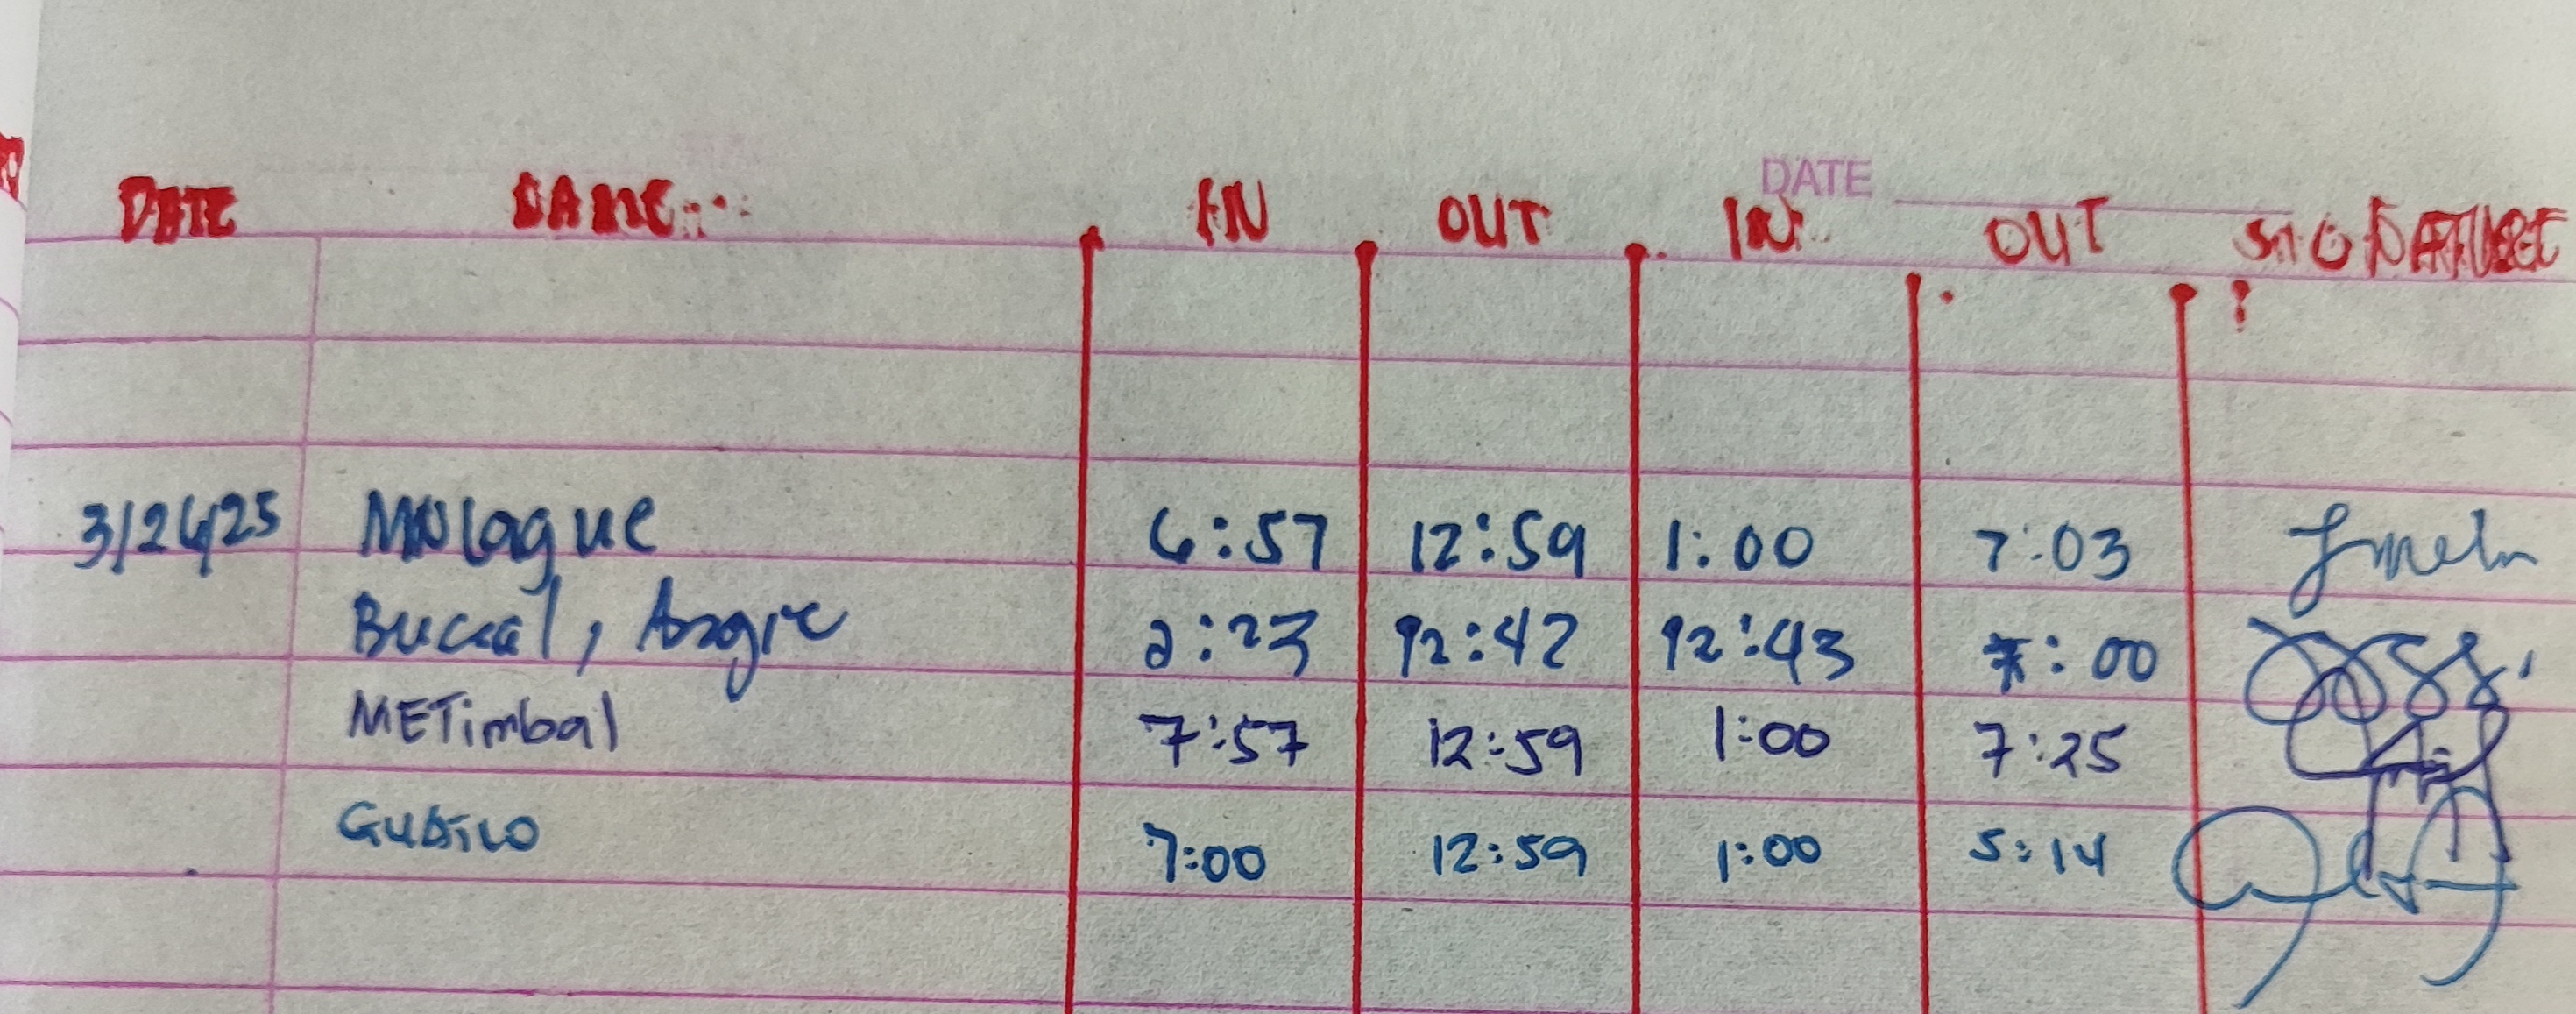 DATE
DATE NAME: IN OUT IN OUT SIGNATURE
3/24/25 MNLague 6:57 12:59 1:00 7:03
Buccal, Angie 2:23 12:42 12:43 :00
METimbal 7:57 12:59 1:00 7:25
7:00 12:59 1:00 5:14